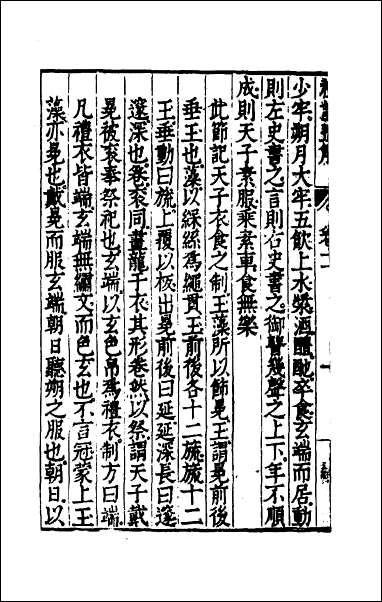 少牢朔月大牢五飲上水漿酒醴酏卒食玄端而居動
則左史書之言則右史書之御瞽幾聲之上下年不順
成則天子素服乘素車食無樂
此節記天子衣食之制玉藻所以飾冕玉謂冕前後
垂玉也藻以綵絲爲繩貫玉前後各十二旒旒十二
玉垂動曰旒上覆以板出冕前後曰延延深長曰邃
邃深也卷袞同畫龍于衣其形卷然以祭謂天子戴
冕被袞奉祭祀也玄端以玄色帛爲禮衣制方曰端
凡禮衣皆端玄端無繡文而色玄也不言冠蒙上玉
藻亦冕也戴冕而服玄端朝日聽朔之服也朝日以